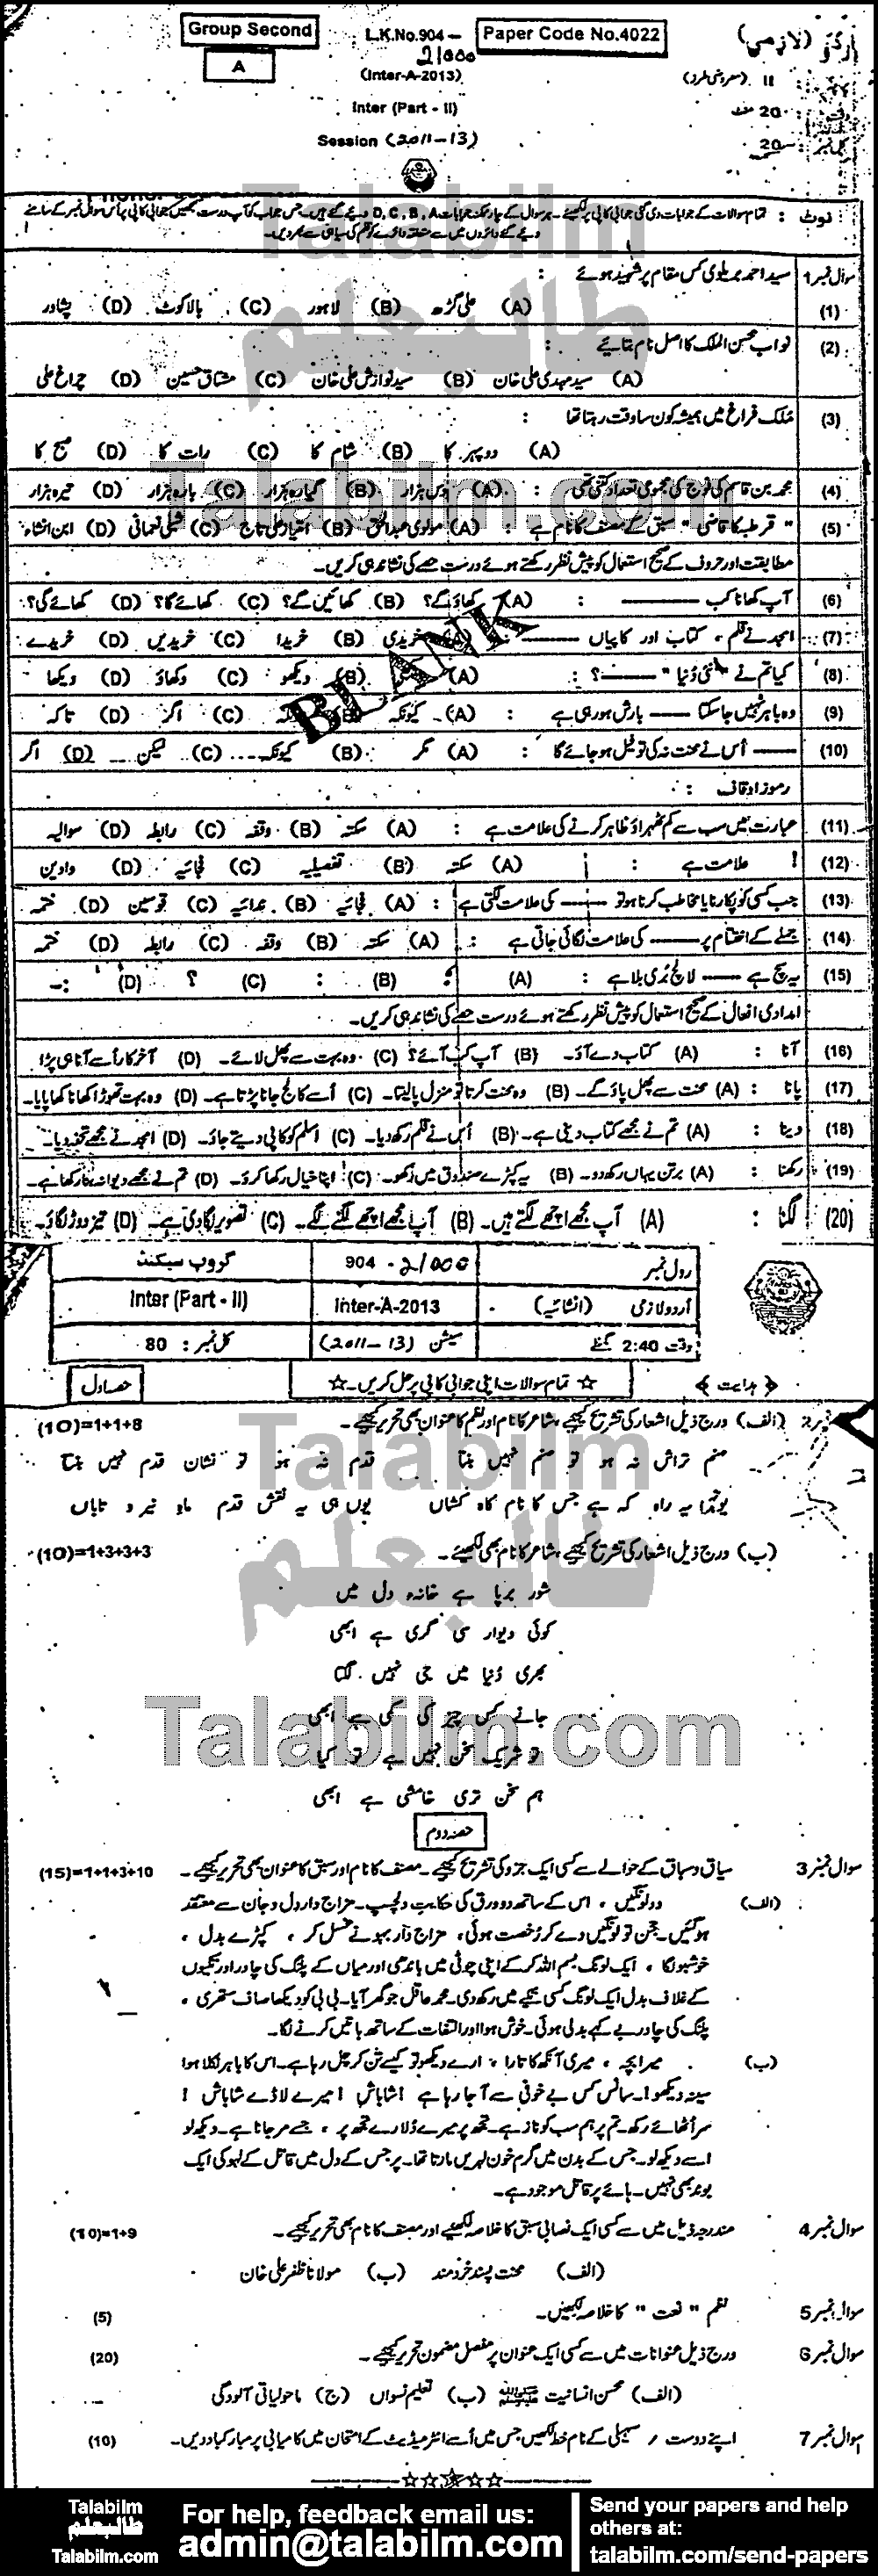 Group Second
L.K.No.904 - 21000
Paper Code No.4022
اردو (لازمی)
A
(Inter-A-2013)
II (معروضی طرز)
Inter (Part - II)
20 منٹ
Session (2011-13)
20
نوٹ : تمام سوالات کے جوابات دی گئی جوابی کاپی پر لکھیے۔ ہر سوال کے چار ممکنہ جوابات D, C, B, A دیے گئے ہیں۔ جس جواب کو آپ درست سمجھیں جوابی کاپی پر اس سوال نمبر کے سامنے
دیے گئے دائروں میں سے متعلقہ دائرے کو قلم کی سیاہی سے بھر دیں۔
سوال نمبر 1 سید احمد بریلوی کس مقام پر شہید ہوئے :
(1) (A) علی گڑھ (B) لاہور (C) بالاکوٹ (D) پشاور
(2) نواب محسن الملک کا اصل نام بتائیے :
(A) سید مہدی علی خان (B) سید نوازش علی خان (C) مشتاق حسین (D) چراغ علی
(3) ملک فراغ میں ہمیشہ کون سا وقت رہتا تھا :
(A) دوپہر کا (B) شام کا (C) رات کا (D) صبح کا
(4) محمد بن قاسم کی فوج کی مجموعی تعداد کتنی تھی : (A) دس ہزار (B) گیارہ ہزار (C) بارہ ہزار (D) تیرہ ہزار
(5) "قرطبہ کا قاضی" سبق کے مصنف کا نام ہے : (A) مولوی عبدالحق (B) امتیاز علی تاج (C) شبلی نعمانی (D) ابن انشاء
مطابقت اور حروف کے صحیح استعمال کو پیش نظر رکھتے ہوئے درست حصے کی نشاندہی کریں۔
(6) آپ کھانا کب ——— : (A) کھاؤ گے؟ (B) کھائیں گے؟ (C) کھائے گا؟ (D) کھائے گی؟
(7) امجد نے قلم ، کتاب اور کاپیاں ——— (A) خریدی (B) خریدا (C) خریدیں (D) خریدے
(8) کیا تم نے "نئی دنیا" ———؟ : (A) (B) دیکھو (C) دکھاؤ (D) دیکھا
(9) وہ باہر نہیں جا سکتا ——— بارش ہو رہی ہے : (A) کیونکہ (B) (C) اگر (D) تاکہ
(10) ——— اُس نے محنت نہ کی تو فیل ہو جائے گا : (A) مگر (B) کیونکہ (C) لیکن (D) اگر
BLANK
رموز اوقاف :
(11) عبارت میں سب سے کم ٹھہراؤ ظاہر کرنے کی علامت ہے : (A) سکتہ (B) وقفہ (C) رابطہ (D) سوالیہ
(12) ! علامت ہے : (A) سکتہ (B) تفصیلیہ (C) فجائیہ (D) واوین
(13) جب کسی کو پکارنا یا مخاطب کرنا ہو تو ——— کی علامت لگتی ہے : (A) فجائیہ (B) ندائیہ (C) قوسین (D) ختمہ
(14) جملے کے اختتام پر ——— کی علامت لگائی جاتی ہے : (A) سکتہ (B) وقفہ (C) رابطہ (D) ختمہ
(15) یہ سچ ہے ——— لالچ بُری بلا ہے : (A) ؛ (B) : (C) ؟ (D) :-
امدادی افعال کے صحیح استعمال کو پیش نظر رکھتے ہوئے درست حصے کی نشاندہی کریں۔
(16) آنا : (A) کتاب دے آؤ۔ (B) آپ کب آئے؟ (C) وہ بہت سے پھل لائے۔ (D) آخر کار اُسے آنا ہی پڑا
(17) پانا : (A) محنت سے پھل پاؤ گے۔ (B) وہ محنت کرتا تو منزل پا لیتا۔ (C) اُسے کالج جانا پڑتا ہے۔ (D) وہ بہت تھوڑا کھانا کھا پایا۔
(18) دینا : (A) تم نے مجھے کتاب دینی ہے۔ (B) اُس نے قلم رکھ دیا۔ (C) اسلم کو کاپی دیتے جاؤ۔ (D) امجد نے مجھے تحفہ دیا۔
(19) رکھنا : (A) برتن یہاں رکھ دو۔ (B) یہ کپڑے صندوق میں رکھو۔ (C) اپنا خیال رکھا کرو۔ (D) تم نے مجھے دیوانہ بنا رکھا ہے۔
(20) لگنا : (A) آپ مجھے اچھے لگتے ہیں۔ (B) آپ مجھے اچھے لگنے لگے۔ (C) تصویر لگا دی ہے۔ (D) تیز دوڑ لگاؤ۔
رول نمبر 904 - 21000 گروپ سیکنڈ
اردو لازمی (انشائیہ) Inter-A-2013 Inter (Part - II)
وقت 2:40 گھنٹے سیشن (2011-13) کل نمبر : 80
﴿ہدایت﴾ ☆ تمام سوالات اپنی جوابی کاپی پر حل کریں۔ ☆ حصہ اول
(الف) درج ذیل اشعار کی تشریح کیجیے، شاعر کا نام اور نظم کا عنوان بھی تحریر کیجیے۔ (10)=1+1+8
صنم تراش نہ ہو تو صنم نہیں بنتا قدم نہ ہو تو نشان قدم نہیں بنتا
یونہی یہ راہ کہ ہے جس کا نام کاہ کشاں یوں ہی یہ نقش قدم ماہ و نیر و تاباں
(ب) درج ذیل اشعار کی تشریح کیجیے، شاعر کا نام بھی لکھیے۔ (10)=1+3+3+3
شور برپا ہے خانہ دل میں
کوئی دیوار سی گری ہے ابھی
بھری دُنیا میں جی نہیں لگتا
جانے کس چیز کی کمی ہے ابھی
تو شریک سخن نہیں ہے تو کیا
ہم سخن تری خامشی ہے ابھی
حصہ دوم
سوال نمبر 3 سیاق و سباق کے حوالے سے کسی ایک جزو کی تشریح کیجیے۔ مصنف کا نام اور سبق کا عنوان بھی تحریر کیجیے۔ (15)=1+1+3+10
(الف) دو لونگیں ، اس کے ساتھ دو ورق کی حکایت دلچسپ۔ مزاج دار دل و جان سے معتقد
ہو گئیں۔ جن تو لونگیں دے کر رخصت ہوئی، مزاج دار بہو نے غسل کر ، کپڑے بدل ،
خوشبو لگا ، ایک لونگ بسم اللہ کر کے اپنی چوٹی میں باندھی اور میاں کے پلنگ کی چادر اور تکیوں
کے غلاف بدل ایک لونگ کسی تکیے میں رکھ دی۔ محمد عاقل جو گھر آیا۔ بی بی کو دیکھا صاف ستھری ،
پلنگ کی چادر بے کہے بدلی ہوئی۔ خوش ہوا اور التفات کے ساتھ باتیں کرنے لگا۔
(ب) میرا بچہ ، میری آنکھ کا تارا ، ارے دیکھو تو کیسے تن کر چل رہا ہے۔ اس کا باہر نکلا ہوا
سینہ دیکھو ا۔ سانس کس بے خوفی سے آ جا رہا ہے ! شاباش ! میرے لاڈے شاباش !
سر اُٹھائے رکھ۔ تم پر ہم سب کو ناز ہے۔ تجھ پر میرے دُلارے تجھ پر ، جسے مر جانا ہے۔ دیکھ لو
اسے دیکھ لو۔ جس کے بدن میں گرم خون لہریں مارتا تھا۔ پر جس کے دل میں قاتل کے لہو کی ایک
بوند بھی نہیں۔ ہائے پر قاتل موجود ہے۔
سوال نمبر 4 مندرجہ ذیل میں سے کسی ایک نصابی سبق کا خلاصہ لکھیے اور مصنف کا نام بھی تحریر کیجیے۔ (10)=1+9
(الف) محنت پسند خردمند (ب) مولانا ظفر علی خان
سوال نمبر 5 نظم "نعت" کا خلاصہ لکھیں۔ (5)
سوال نمبر 6 درج ذیل عنوانات میں سے کسی ایک عنوان پر مفصل مضمون تحریر کیجیے۔ (20)
(الف) محسن انسانیت ﷺ (ب) تعلیم نسواں (ج) ماحولیاتی آلودگی
سوال نمبر 7 اپنے دوست / سہیلی کے نام خط لکھیں جس میں اُسے انٹرمیڈیٹ کے امتحان میں کامیابی پر مبارکباد دیں۔ (10)
☆☆☆☆☆
Talabilm
طالبعلم
Talabilm.com
Talabilm
طالبعلم
Talabilm.com
Talabilm
طالبعلم
Talabilm.com
For help, feedback email us:
admin@talabilm.com
Send your papers and help
others at:
talabilm.com/send-papers